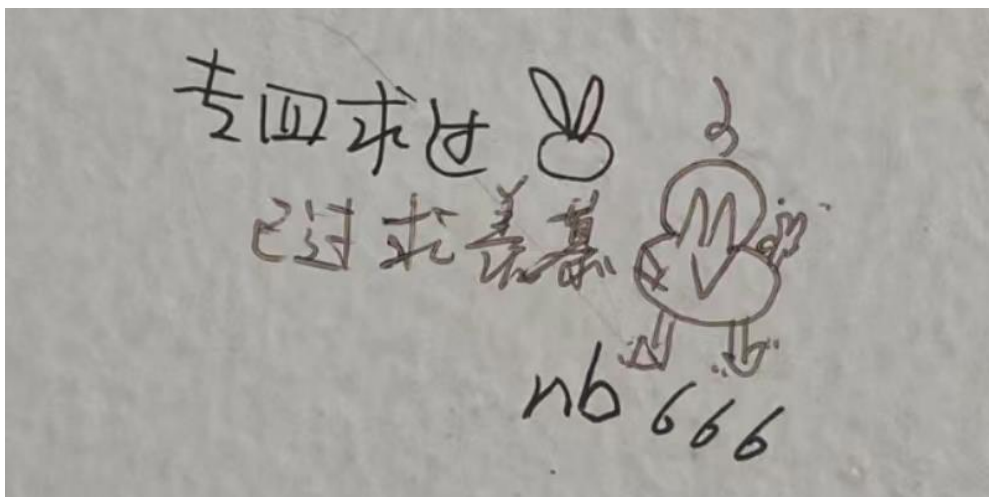 专四求过
已过求羡慕
nb 666